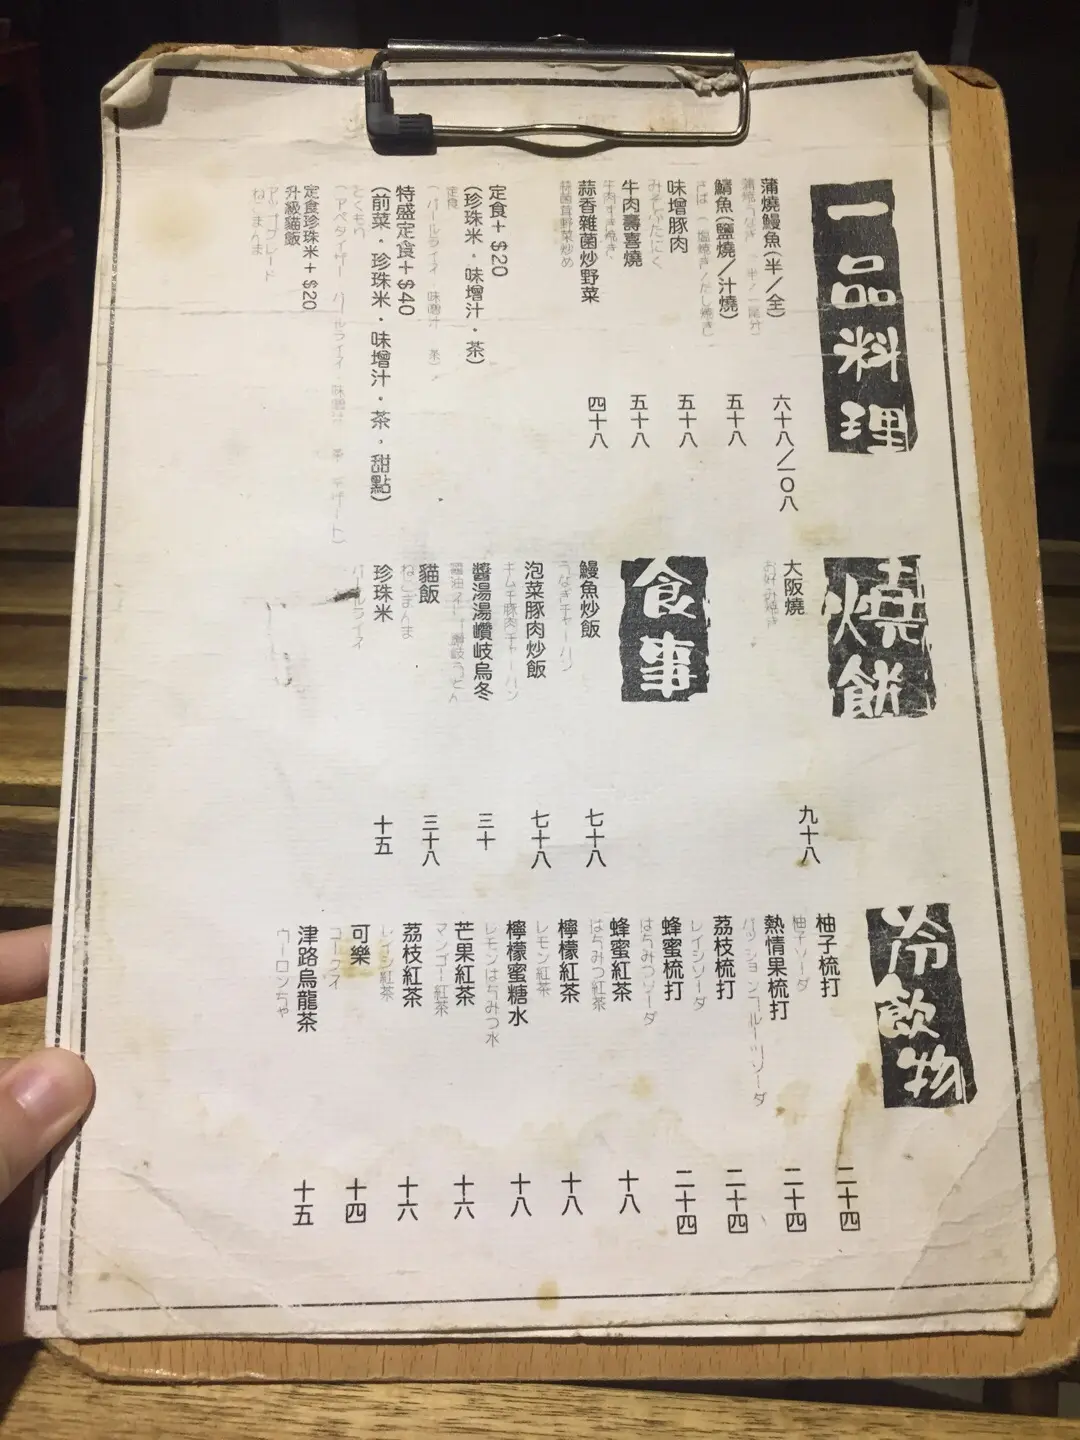 一品料理
蒲燒鰻魚(半/全) 六十八/一0八
蒲焼うなぎ(半/一尾分)
鯖魚(鹽燒/汁燒) 五十八
さば(塩焼き/だし焼き)
味增豚肉 五十八
みそぶたにく
牛肉壽喜燒 五十八
牛肉すき焼き
蒜香雜菌炒野菜 四十八
定食+ $20
(珍珠米·味增汁·茶)
定食
(パールライス 味噌汁 茶)
特盛定食+$40
(前菜·珍珠米·味增汁·茶,甜點)
とくもり
(アペタイザー パールライス·味噌汁 茶 デザート)
定食珍珠米+$20
升級貓飯
アップグレード
ねこまんま
燒餅
大阪燒 九十八
お好み焼き
食事
鰻魚炒飯 七十八
うなぎチャーハン
泡菜豚肉炒飯 七十八
キムチ豚肉チャーハン
醬湯湯讚岐烏冬 三十
貓飯 三十八
ねこまんま
珍珠米 十五
パールライス
冷飲物
柚子梳打 二十四
柚子ソーダ
熱情果梳打 二十四
荔枝梳打 二十四
レイシソーダ
蜂蜜梳打 二十四
はちみつソーダ
蜂蜜紅茶 十八
はちみつ紅茶
檸檬紅茶 十八
レモン紅茶
檸檬蜜糖水 十八
レモンはちみつ水
芒果紅茶 十六
マンゴー紅茶
荔枝紅茶 十六
レイシ紅茶
可樂 十四
津路烏龍茶 十五
ウーロンちゃ